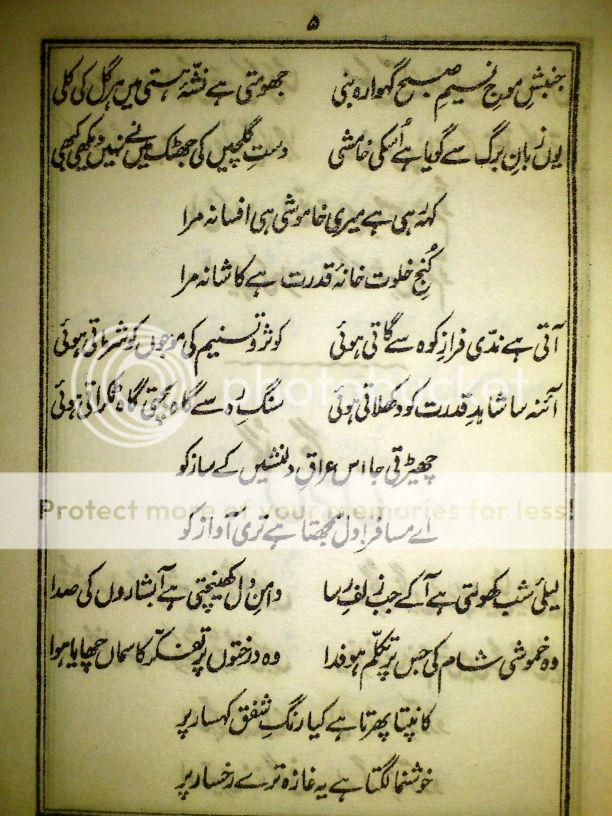 ۵
جنبشِ موجِ نسیمِ صبح گہوارہ بنی جھومتی ہے نشۂ ہستی میں ہر گل کی کلی
یوں زبانِ برگ سے گویا ہے اُسکی خامشی دستِ گلچیں کی جھٹک میں نے نہیں دیکھی کبھی
کہہ رہی ہے میری خاموشی ہی افسانہ مرا
کُنجِ خلوت خانۂ قدرت ہے کاشانہ مرا
آتی ہے ندّی فرازِ کوہ سے گاتی ہوئی کوثر و تسنیم کی موجوں کو شرماتی ہوئی
آئنہ سا شاہدِ قدرت کو دکھلاتی ہوئی سنگِ رہ سے گاہ بچتی گاہ ٹکراتی ہوئی
photobucket
چھیڑتی جا اس عراقِ دلنشیں کے ساز کو
Protect more of your memories for less!
اے مسافر دل سمجھتا ہے تری آواز کو
لیلیٔ شب کھولتی ہے آ کے جب زلفِ رسا دامنِ دل کھینچتی ہے آبشاروں کی صدا
وہ خموشی شام کی جس پر تکلّم ہو فدا وہ درختوں پر تفکّر کا سماں چھایا ہوا
کانپتا پھرتا ہے کیا رنگِ شفق کہسار پر
خوشنما لگتا ہے یہ غازہ ترے رخسار پر